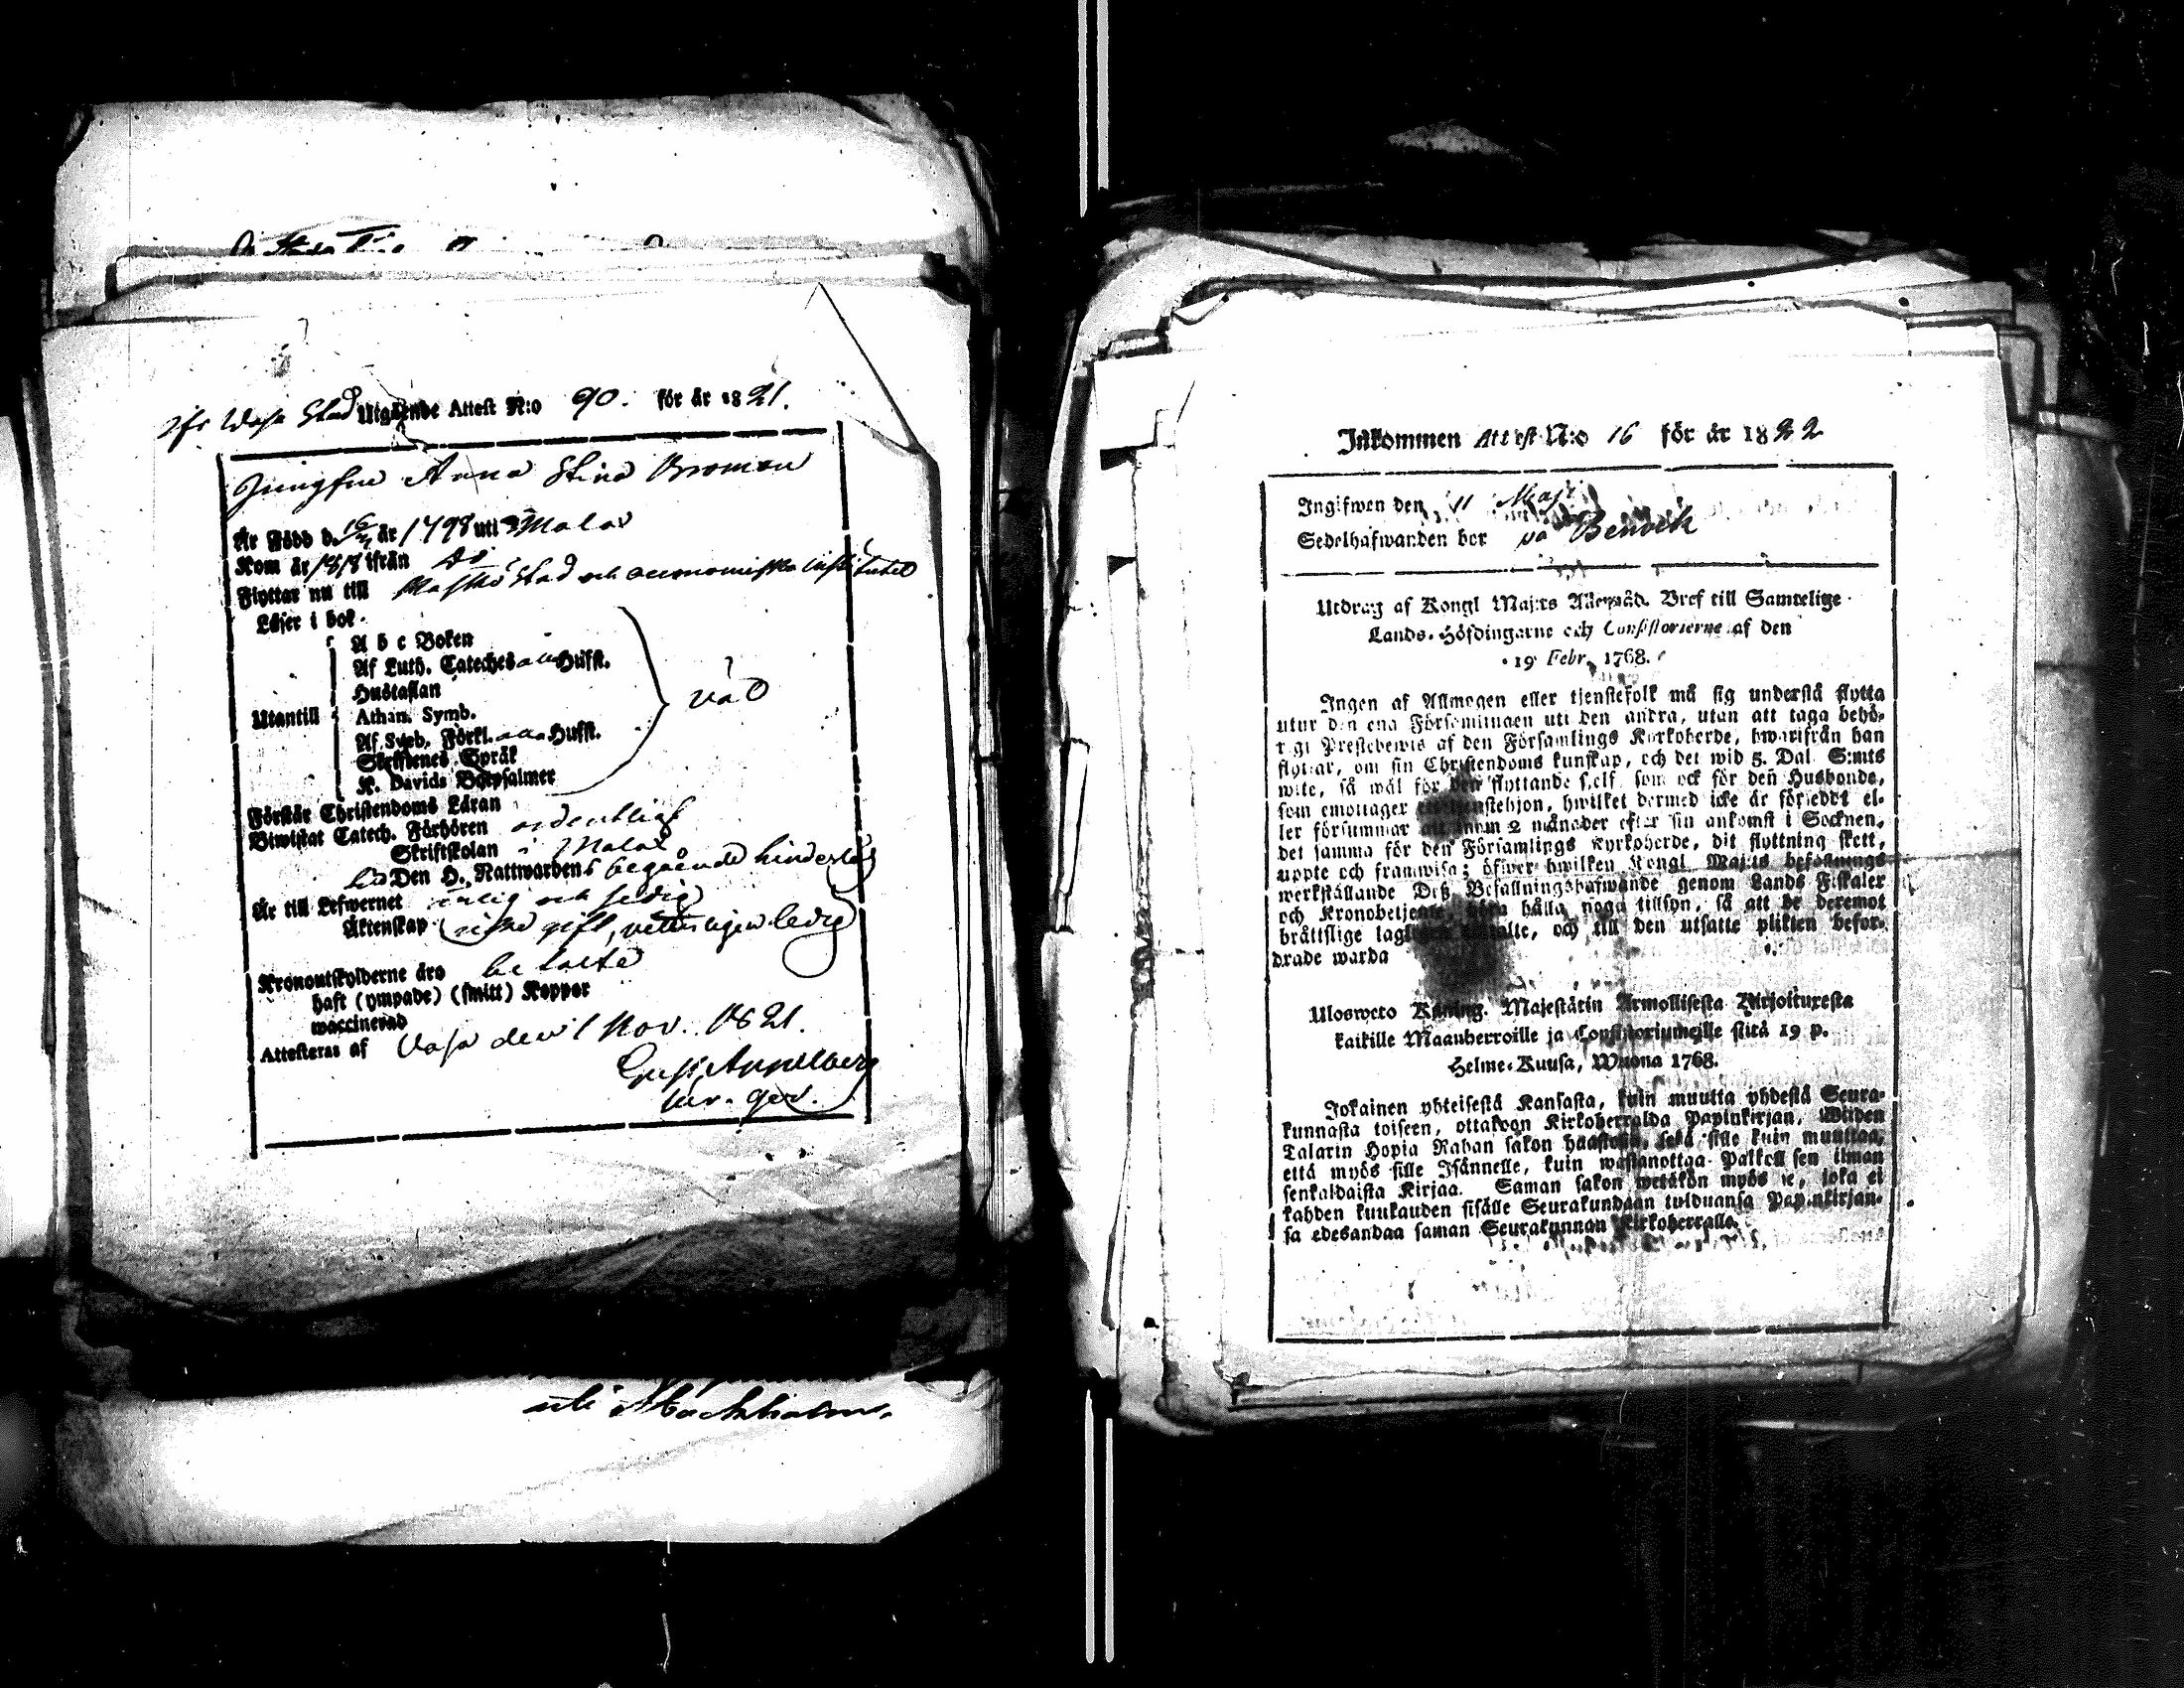 ifr Wasa Stad Utgående Attest N:o 90. för år 1821.
Jungfru Anna Stina Broman
Är Född d. 16 år 1798 uti Malax
Kom år 1818 ifrån
Flyttar nu till Stad och oeconomiska institutet
Läser i bok
A b c Boken
Af Luth. Cateches Hufst.
Hustaflan
Utantill Athan. Symb.
Af Sveb. Förkl. Hufst.
Skriftenes Språk
K. Davids Botpsalmer
Förstår Christendoms Läran
Biwistat Catech. Förhören ordentligt
Skriftskolan i Malax
Den H. Nattwardens begående
Är till Lefwernet ärlig och sedig
Äktenskap gift, ledig
Kronoutskylderne äro betalte
haft (ympade) (smitt) Koppor
waccinerad
Attesteras af Vasa den 1 Nov. 1821.
Appelberg
uti Stockholm.
Inkommen Attest N:o 16 för år 1822
Ingifwen den 11 Maji
Sedelhafwanden bor på Benvik
Utdrag af Kongl Maj:ts Allernåd. Bref till Samtelige
Lands-Höfdingarne och Consistorierne af den
19 Febr. 1768.
Ingen af Allmogen eller tjenstefolk må sig understå flytta
utur den ena Församlingen uti den andra, utan att taga behö-
rigt Prestebewis af den Församlings Kyrkoherde, hwarifrån han
flyttar, om sin Christendoms kunskap, och det wid 5. Dal. S:mts
wite, så wäl för den flyttande sjelf som ock för den Husbonde,
som emottager ett tjenstehjon, hwilket dermed icke är försedt el-
ler försummar att inom 2 månader efter sin ankomst i Socknen,
det samma för den Församlings Kyrkoherde, dit flyttning skett,
uppte och framwisa; öfwer hwilken Kongl Maj:ts befallnings
werkställande Deß Befallningshafwande genom Lands Fiskaler
och Kronobetjente, göra hålla noga tillsyn, så att de deremot
bråttslige lagligen tilltalte, och till den utsatte plikten befor-
drade warda
Ulosweto Kuning. Majestätin Armollisesta Kirjoituxesta
kaikille Maanherroille ja Consistoriumeille siitä 19 p.
Helme-Kuusa, Wuona 1768.
Jokainen yhteisestä Kansasta, kuin muutta yhdestä Seura-
kunnasta toiseen, ottakoon Kirkoherralda Papinkirjan, Wiiden
Talarin Hopia Rahan sakon haastolla, sekä sille kuin muuttaa,
että myös sille Isännelle, kuin wastanottaa Palkollisen ilman
senkaldaista Kirjaa. Saman sakon wetäkön myös se, joka ei
kahden kuukauden sisälle Seurakundaan tulduansa Papinkirjan-
sa edesandaa saman Seurakunnan Kirkoherralle.